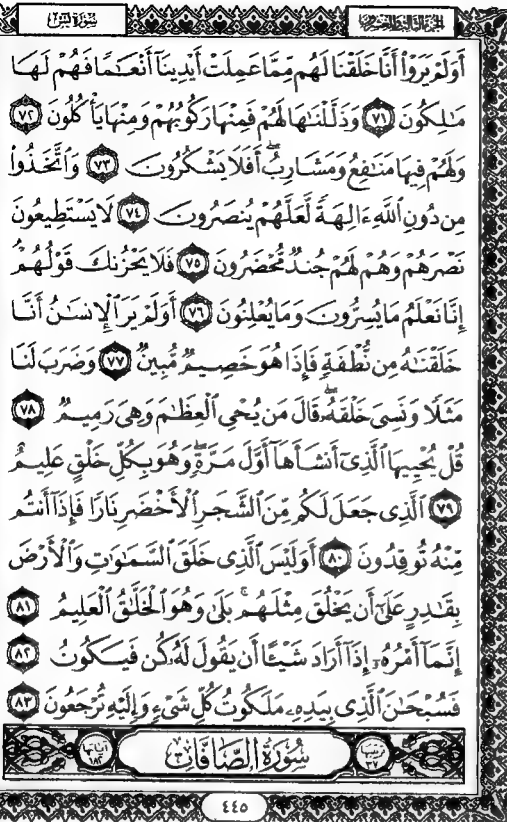 سُورَةُ يسٓ
الجُزءُ الثَّالِثُ وَالعِشْرُونَ
أَوَلَمْ يَرَوْا۟ أَنَّا خَلَقْنَا لَهُم مِّمَّا عَمِلَتْ أَيْدِينَآ أَنْعَـٰمًا فَهُمْ لَهَا
مَـٰلِكُونَ ٧١ وَذَلَّلْنَـٰهَا لَهُمْ فَمِنْهَا رَكُوبُهُمْ وَمِنْهَا يَأْكُلُونَ ٧٢
وَلَهُمْ فِيهَا مَنَـٰفِعُ وَمَشَارِبُ ۖ أَفَلَا يَشْكُرُونَ ٧٣ وَٱتَّخَذُوا۟
مِن دُونِ ٱللَّهِ ءَالِهَةً لَّعَلَّهُمْ يُنصَرُونَ ٧٤ لَا يَسْتَطِيعُونَ
نَصْرَهُمْ وَهُمْ لَهُمْ جُندٌ مُّحْضَرُونَ ٧٥ فَلَا يَحْزُنكَ قَوْلُهُمْ ۘ
إِنَّا نَعْلَمُ مَا يُسِرُّونَ وَمَا يُعْلِنُونَ ٧٦ أَوَلَمْ يَرَ ٱلْإِنسَـٰنُ أَنَّا
خَلَقْنَـٰهُ مِن نُّطْفَةٍ فَإِذَا هُوَ خَصِيمٌ مُّبِينٌ ٧٧ وَضَرَبَ لَنَا
مَثَلًا وَنَسِىَ خَلْقَهُۥ ۖ قَالَ مَن يُحْىِ ٱلْعِظَـٰمَ وَهِىَ رَمِيمٌ ٧٨
قُلْ يُحْيِيهَا ٱلَّذِىٓ أَنشَأَهَآ أَوَّلَ مَرَّةٍ ۖ وَهُوَ بِكُلِّ خَلْقٍ عَلِيمٌ
٧٩ ٱلَّذِى جَعَلَ لَكُم مِّنَ ٱلشَّجَرِ ٱلْأَخْضَرِ نَارًا فَإِذَآ أَنتُم
مِّنْهُ تُوقِدُونَ ٨٠ أَوَلَيْسَ ٱلَّذِى خَلَقَ ٱلسَّمَـٰوَٰتِ وَٱلْأَرْضَ
بِقَـٰدِرٍ عَلَىٰٓ أَن يَخْلُقَ مِثْلَهُم ۚ بَلَىٰ وَهُوَ ٱلْخَلَّـٰقُ ٱلْعَلِيمُ ٨١
إِنَّمَآ أَمْرُهُۥٓ إِذَآ أَرَادَ شَيْـًٔا أَن يَقُولَ لَهُۥ كُن فَيَكُونُ ٨٢
فَسُبْحَـٰنَ ٱلَّذِى بِيَدِهِۦ مَلَكُوتُ كُلِّ شَىْءٍ وَإِلَيْهِ تُرْجَعُونَ ٨٣
ترتيبها ٣٧ سُورَةُ الصَّافَّات آياتها ١٨٢
٤٤٥